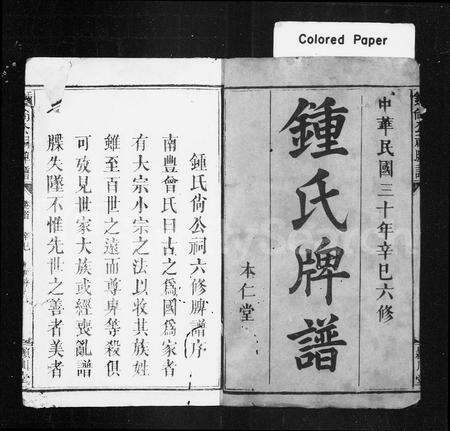 Colored Paper
中華民國三十年辛巳六修
鍾氏牌譜
本仁堂
鍾氏尙公祠六修牌譜序
南豐曾氏曰古之爲國爲家者
有大宗小宗之法以收其族姓
雖至百世之遠而尊卑等殺俱
可攷見世家大族或經喪亂譜
牒失墜不惟先世之善者美者